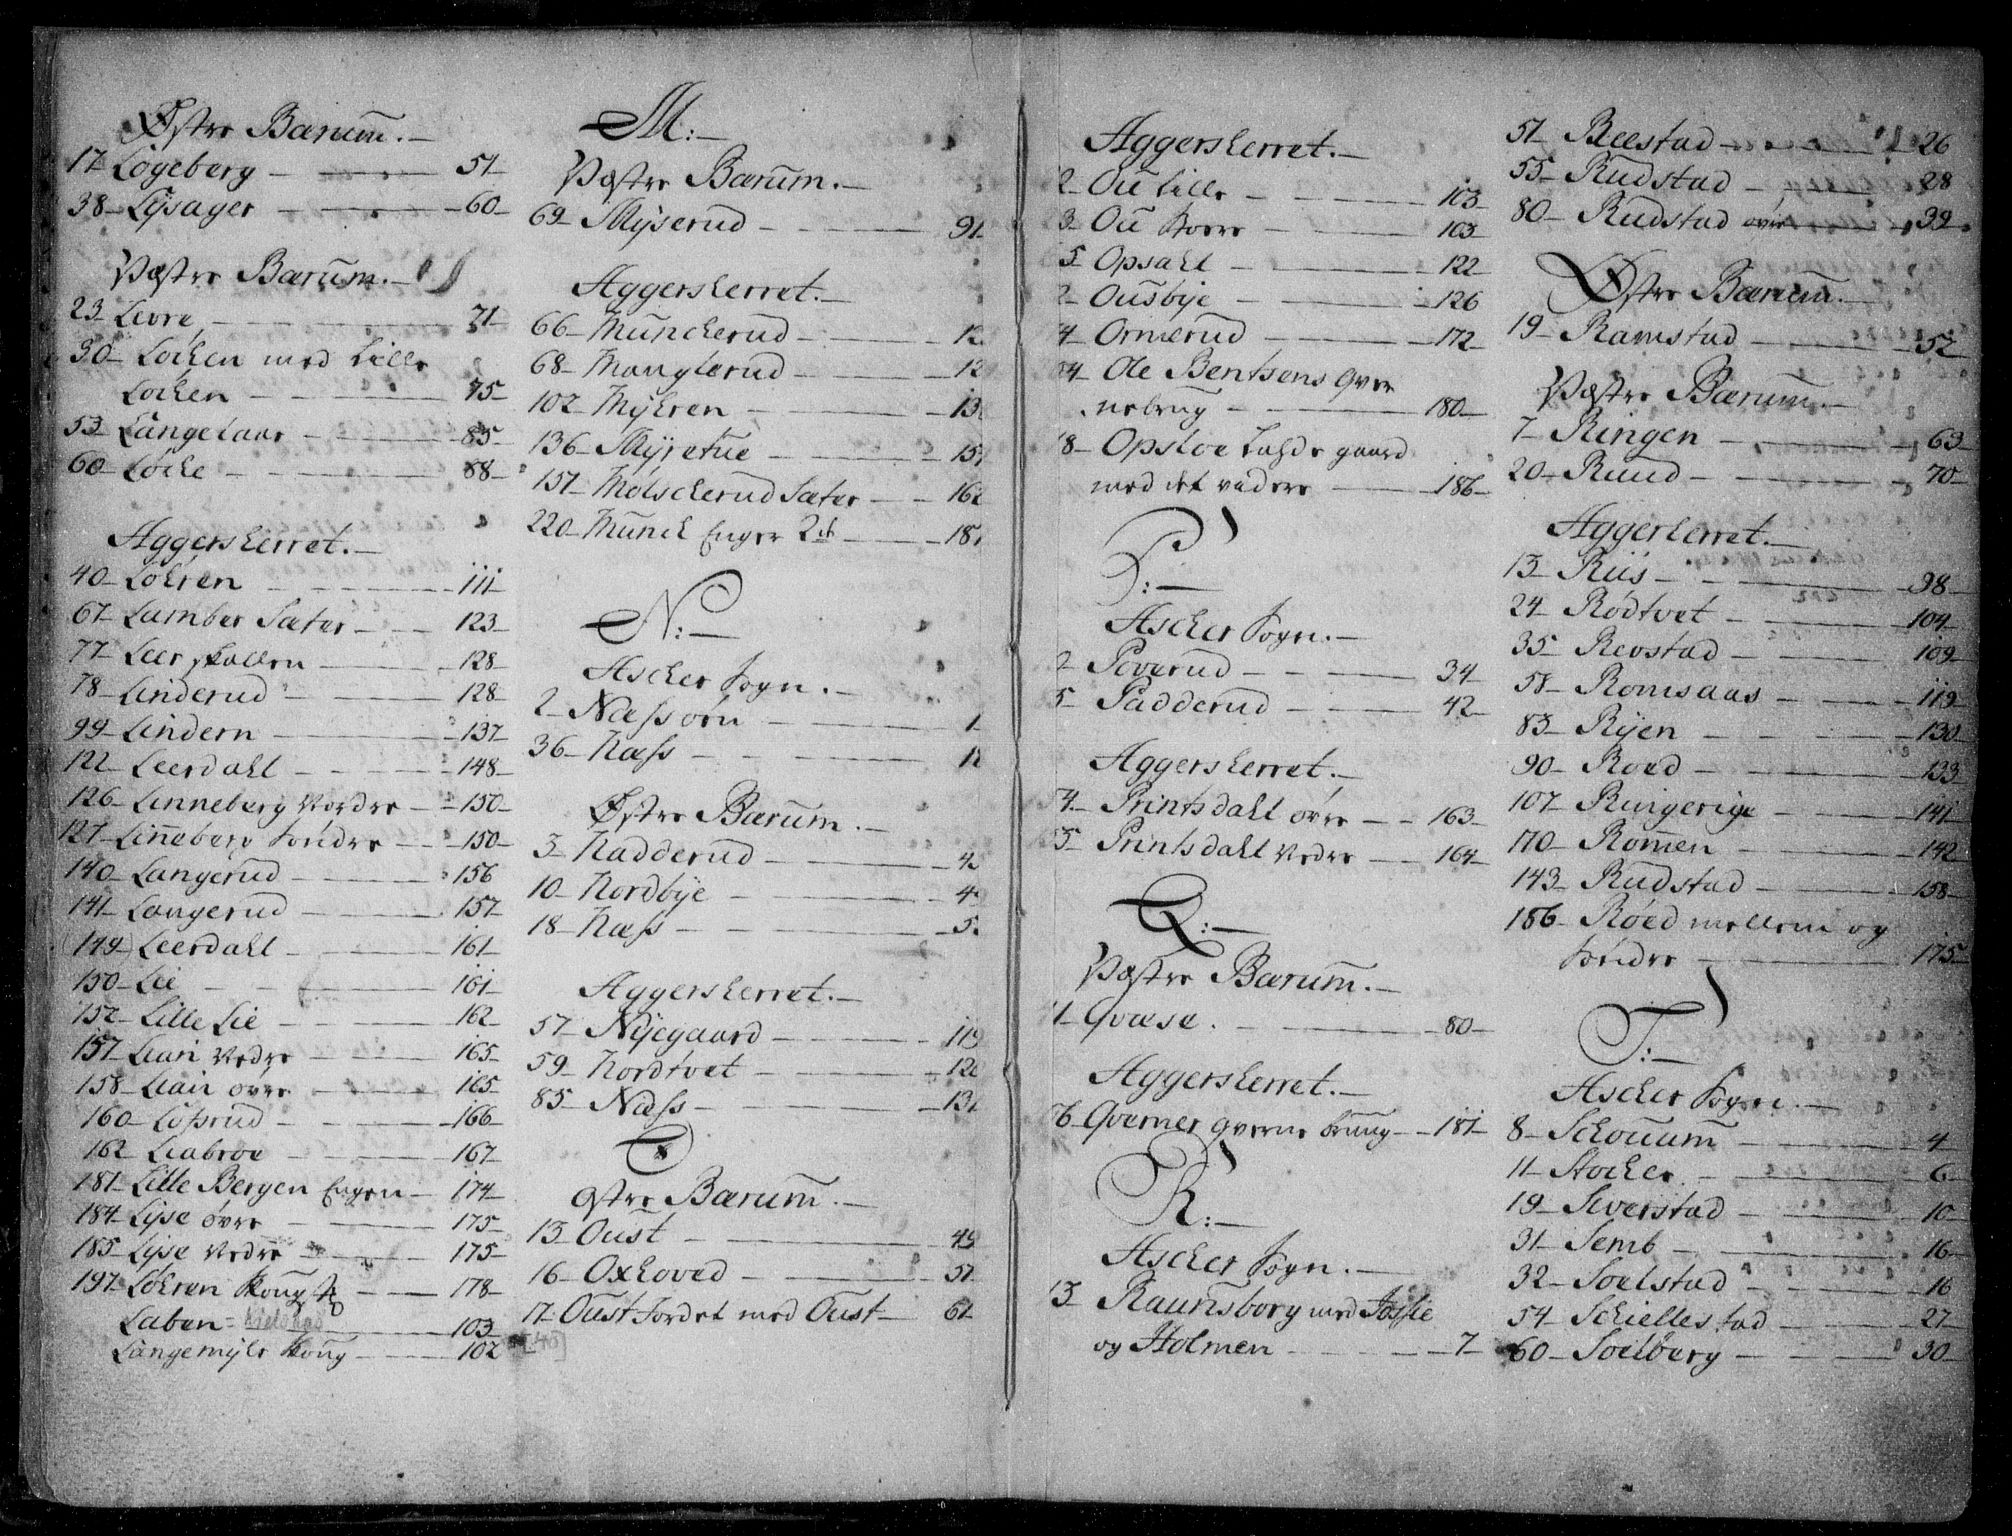 Østre Bærum.
17 Løgeberg 51
38 Lysager 60
Væstre Bærum.
23 Levre 71
30 Løcken med Lille
Løcken 75
53 Langelaar 85
60 Løcke 88
Aggersherret.
40 Løkren 111
67 Lamber Sæter 123
77 Leerskallen 128
78 Linderud 128
99 Lindern 137
122 Leerdahl 148
126 Linneberg Nordre 150
127 Linneberg Søndre 150
140 Langerud 156
141 Langerud 157
149 Leerdahl 161
150 Lie 161
152 Lille Lie 162
157 Lian Nedre 165
158 Lian øvre 165
160 Lofsrud 166
162 Liabroe 167
181 Lille Bergen Engen 174
184 Lyse øvre 175
185 Lyse Nedre 175
197 Løkren 178
Laben 103
Langemyhr Skoug 102
M:
Væstre Bærum.
69 Myserud 91
Aggersherret.
66 Munckerud 12
68 Manglerud 12
102 Myhren 13
136 Myretue 15
151 Mølscherud Sæter 162
220 Munck Enger 2de 18
N:
Ascher Sogn.
2 Næssøen 1
36 Næss 1
Østre Bærum.
3 Nadderud 4
10 Nordbye 4
18 Næss 5
Aggersherret.
57 Nyegaard 119
59 Nordtvet 120
85 Næss 131
O
Østre Bærum.
13 Oust 49
16 Oxhoved 51
17 Oust Jordet med Oust 61
Aggersherret.
2 Ou Lille 103
3 Ou Store 103
5 Opsahl 122
2 Ousbye 126
4 Ormerud 172
4 Ole Bentsens Qver
nebrug 180
8 Opsloe Ladegaard
med det videre 186
P:
Ascher Sogn.
2 Poverud 34
5 Padderud 42
Aggersherret.
4 Printsdahl øvre 163
5 Printsdahl Nedre 164
Q:
Væstre Bærum.
1 Qvæse. 80
Aggersherret.
6 Qverner Qverne brug 181
R:
Ascher Sogn.
13 Raunsborg med
og Holmen 7
51 Reestad 26
55 Rudstad 28
80 Rudstad øvre 39
Østre Bærum.
19 Ramstad 52
Væstre Bærum.
7 Ringen 63
20 Ruud 70
Aggerherret.
13 Riis 98
24 Rødtvet 104
35 Revstad 109
58 Romsaas 119
83 Ryen 130
90 Roed 133
107 Ringerige 141
110 Rommen 142
143 Rudstad 158
186 Røed mellem og
Søndre 175
S:
Ascher Sogn.
8 Schouum 4
11 Stocker 6
19 Siverstad 10
31 Semb 16
32 Soelstad 16
54 Schiellestad 27
60 Soelberg 30